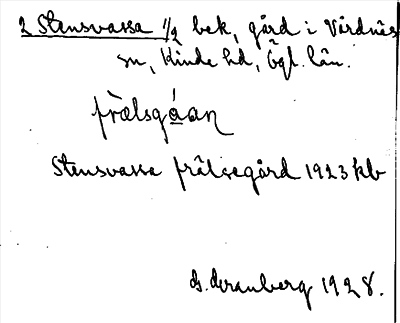 2 Stensvassa 1/2 bek, gård i Vårdnäs
sn, Kinda hd, Ögl. län.
frälsgá̱an
Stensvassa frälsegård 1923 kb
1928.